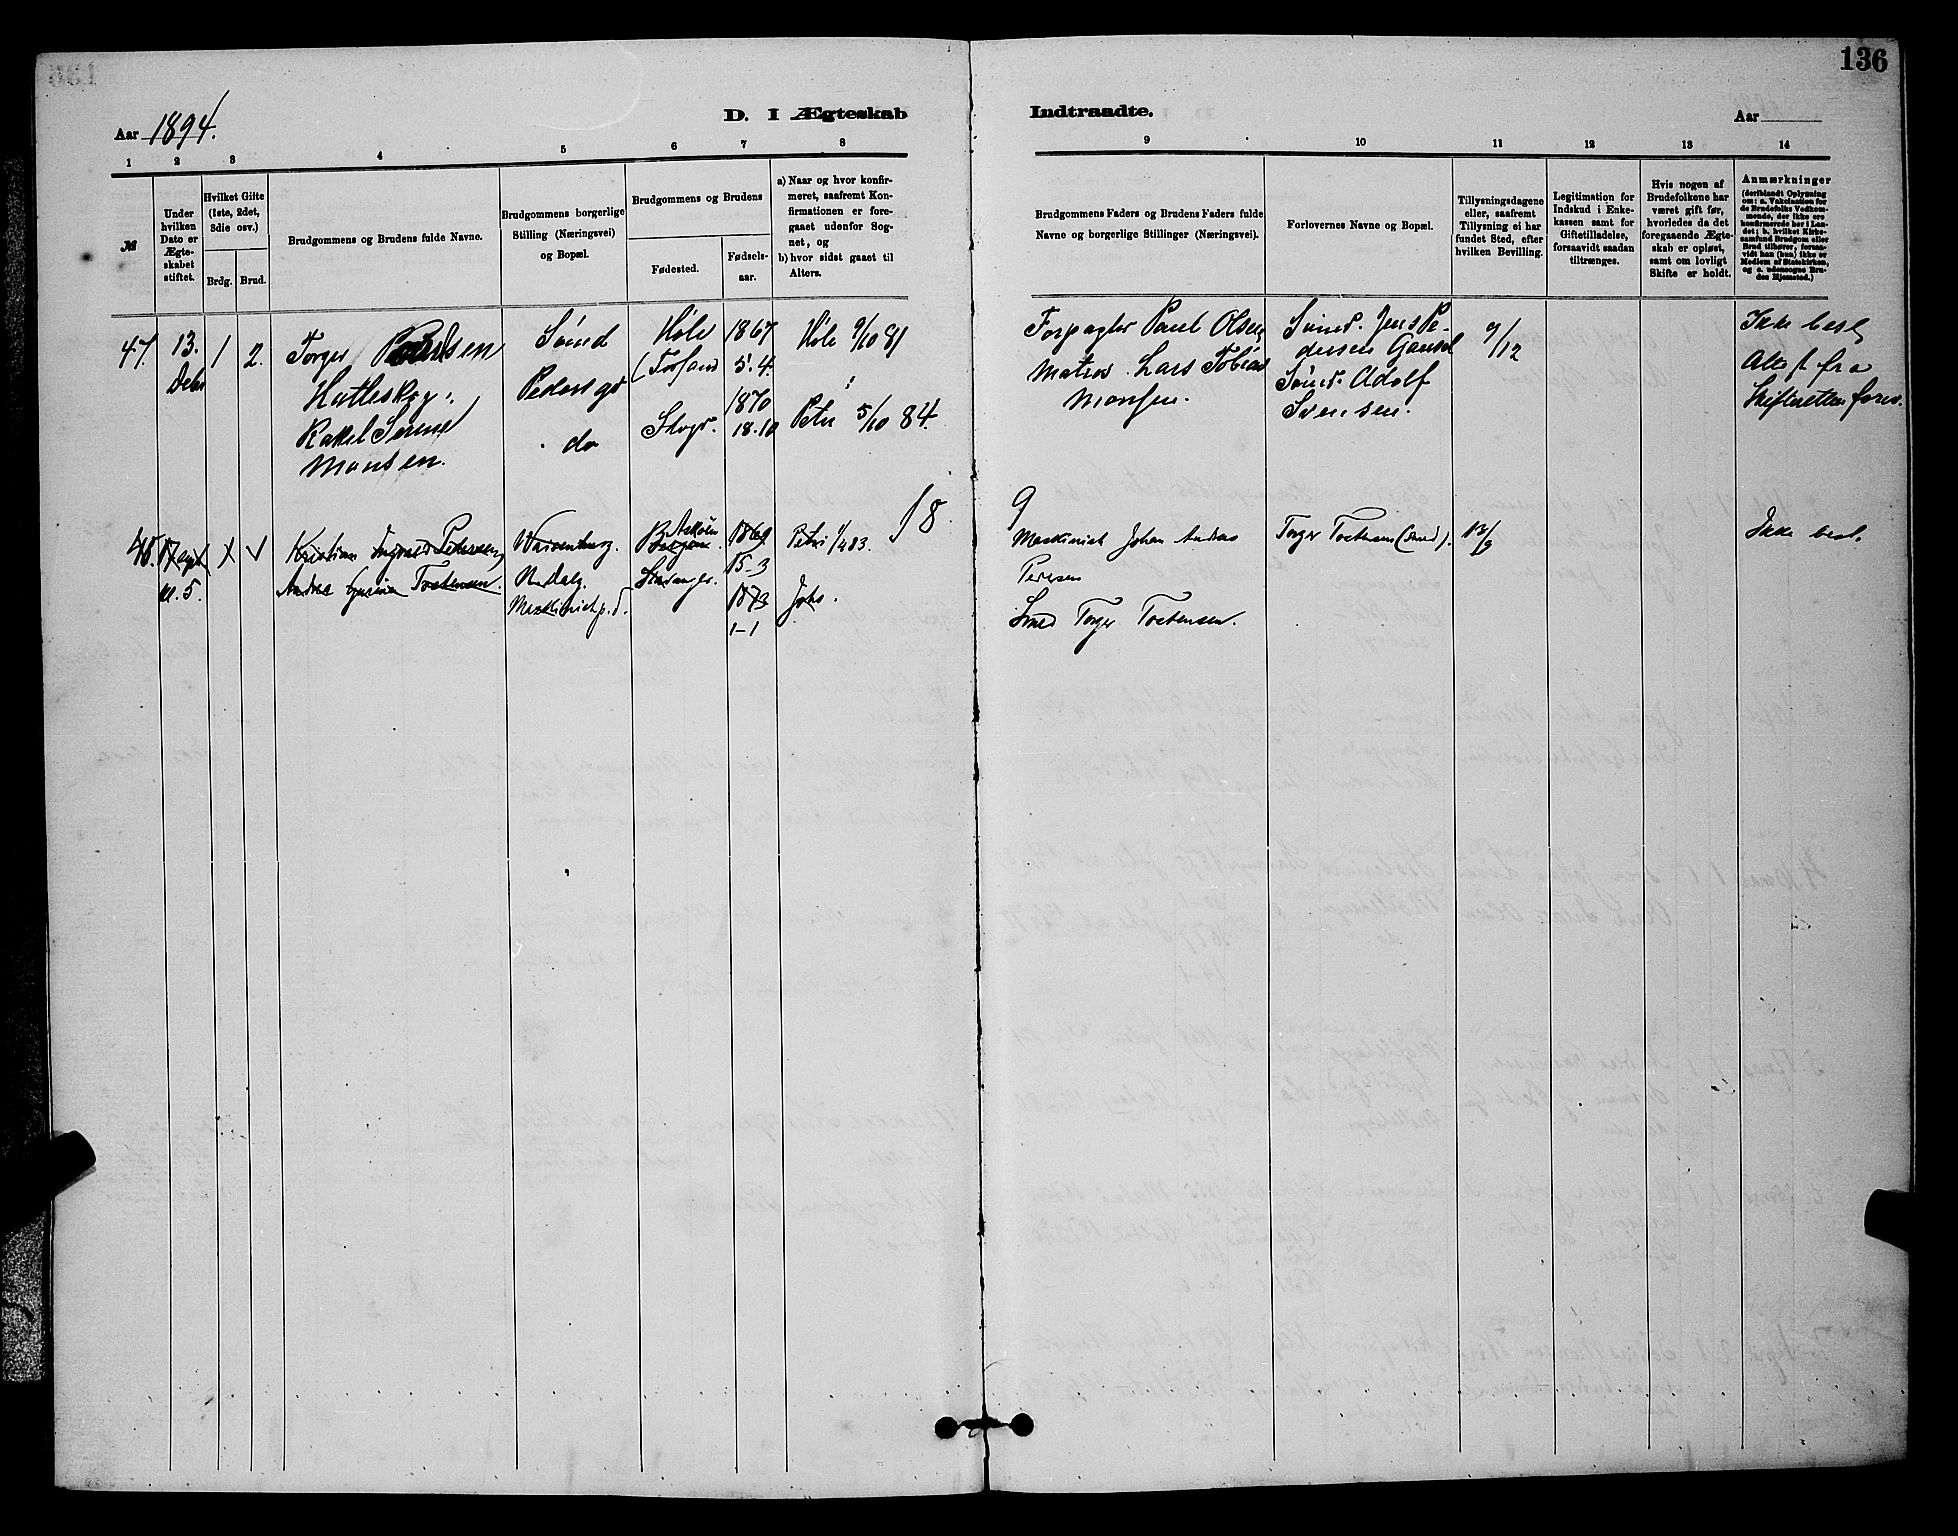 136
Aar 1894.
D. I Ægteskab
Indtraadte.
Aar
1 2 3 4 5 6 7 8
9 10 11 12 13 14
№
Under hvilken Dato er Ægteskabet stiftet.
Hvilket Gifte (1ste, 2det, 3die osv.)
Brdg.
Brud.
Brudgommens og Brudens fulde Navne.
Brudgommens borgerlige Stilling (Næringsvei) og Bopæl.
Brudgommens og Brudens
Fødested.
Fødsels-
aar.
a) Naar og hvor konfir-
meret, saafremt Kon-
firmationen er fore-
gaaet udenfor Sog-
net, og
b) hvor sidst gaaet til
Alters.
Brudgommens Faders og Brudens Faders fulde
Navne og borgerlige Stillinger (Næringsvei).
Forlovernes Navne og Bopæl.
Tillysningsdagene
eller, saafremt
Tillysning ei har
fundet Sted, efter
hvilken Bevilling.
Legitimation for
Indskud i Enke-
kassen samt for
Giftetilladelse,
forsaavidt saadan
tiltrænges.
Hvis nogen af
Brudefolkene har
været gift før,
hvorledes da det
foregaaende Ægte-
skab er opløst,
samt om lovligt
Skifte er holdt.
Anmærkninger
(deriblandt Oplysning
om: a. Vakcination for
de Brudefolks Vedkom-
mende, der ikke ere
konfirmerede her i Lan-
det; b. hvilket Kirke-
samfund Brudgom eller
Brud tilhører, forsaa-
vidt han (hun) ikke er
Medlem af Statskirken,
og c. udensogns Bru-
des Hjemsted.)
47
13.
Debr
1
2.
Torger
Hatleskog.
Rakel Serine
Monsen.
Pedersgd
do
Høle
(Forsand
1867
5.4.
1870
18.10
Høle 9/10 81
Petri 5/10 84.
Forpagter Paul Olsen
Matros Lars Tobias
Monsen.
Jens Pe-
dersen
Adolf
Svensen.
9/12
Ikke besl.
Att. fra
Skifteretten forev.
18.
9
48.
kl. 5.
Kristian Ingvald Petersen,
Tostensen.
Maskinist p. d.
Askøen
Bergen
Stavanger.
1861
15-3
1873
1-1
Petri 1/4 83.
Johs.
Maskinist Johan Andreas
Petersen
Smed Torger Tostensen.
Torger Tostensen (Smed).
13/9
Ikke besl.